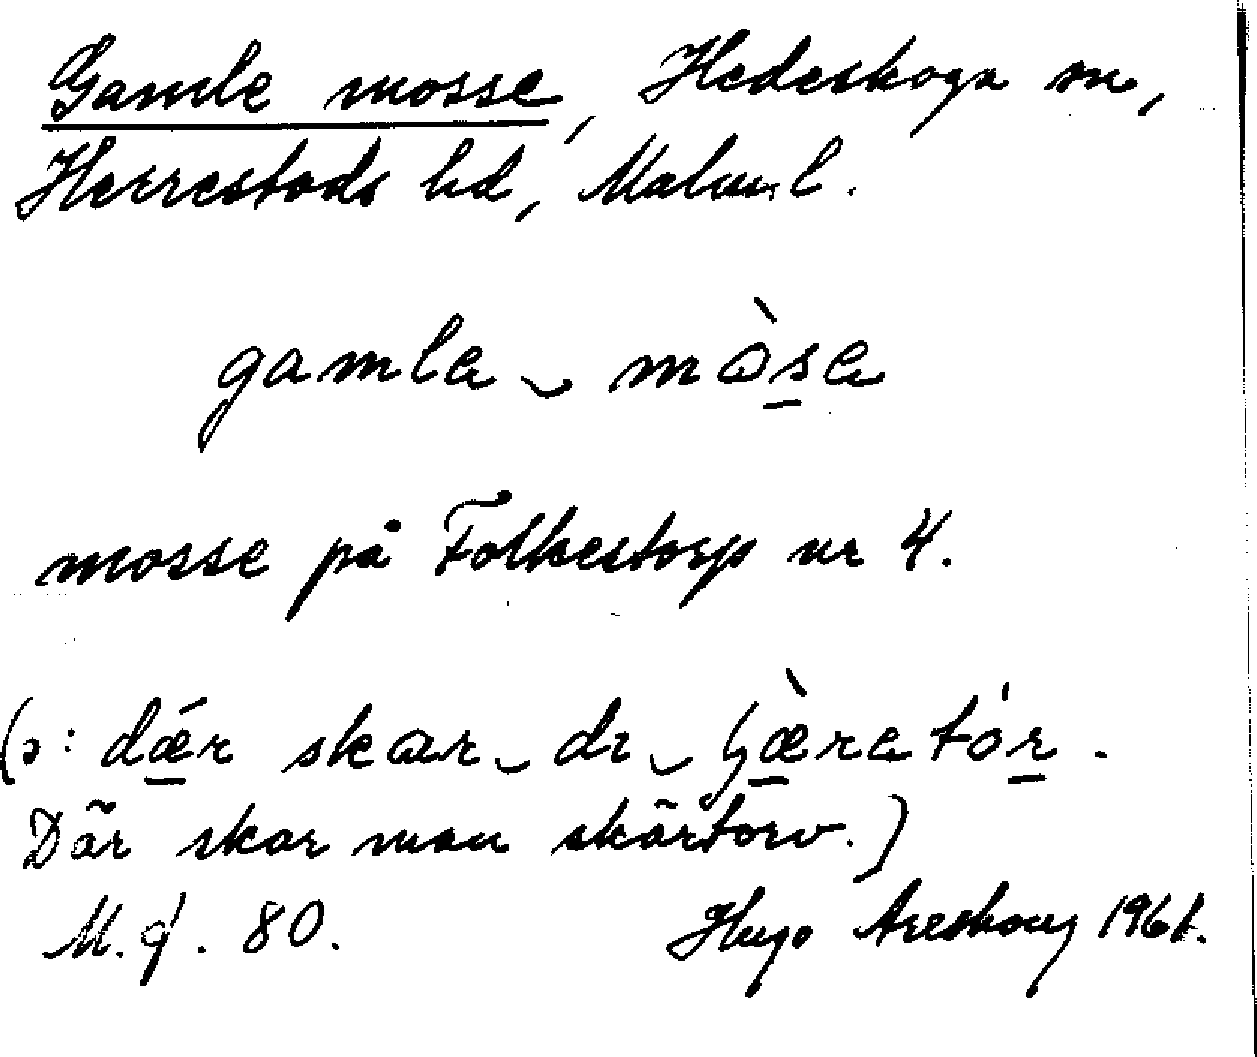 Gamle mosse, Hedeskoga sn,
Herrestads hd, Malm.l.
gamlə‿mòs̠ə
mosse på Folkestorp nr 4.
(ɔ: dǽ̠r skɑr‿di‿ʃæ̠̀rətór̠.
Där skar man skärtorv.)
M.q. 80. Hugo Areskoug 1961.